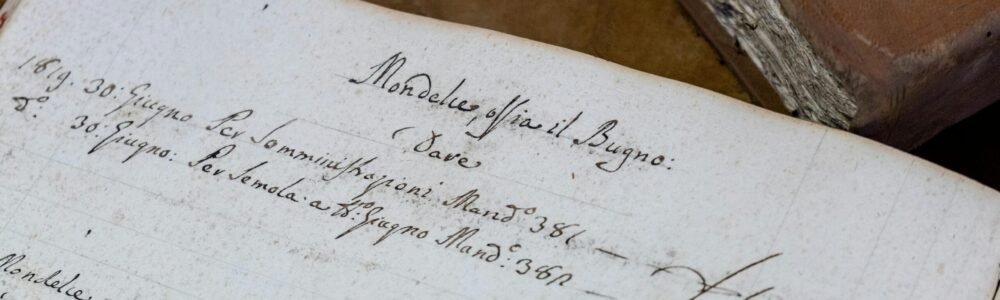 Mondelce, ossia il Bugno:
Dare
1819. 30: Giugno Per Somministrazioni Mand:º 381
dº: 30: Giugno: Per Semola: a tt:º Giugno Mand:º 382
Mondelce,